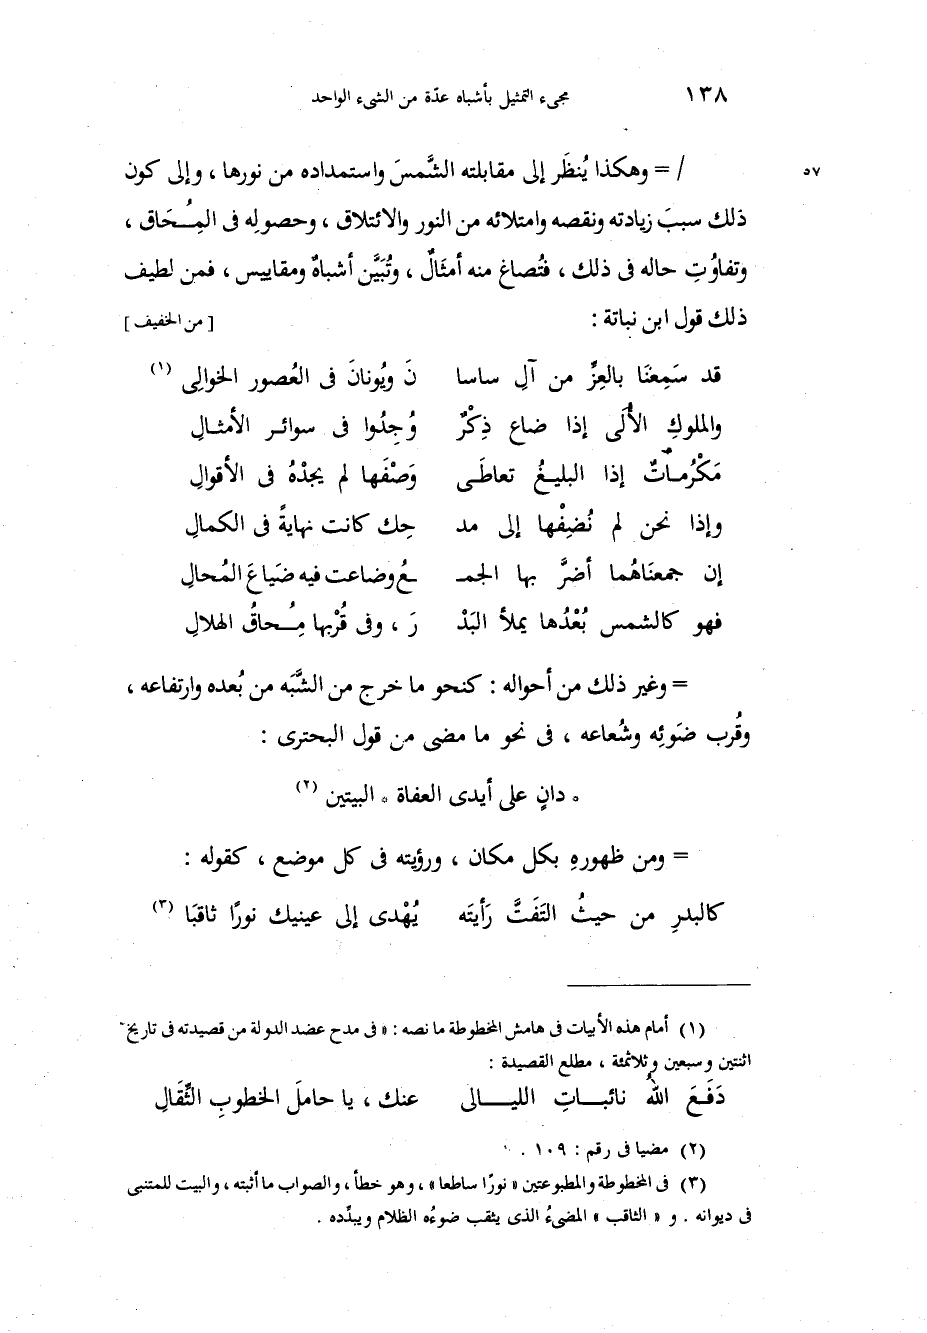 ١٣٨ مجىء التمثيل بأشباه عدّة من الشىء الواحد
٥٧ / = وهكذا يُنظَر إلى مقابلته الشَّمسَ واستمداده من نورها ، وإلى كون
ذلك سببَ زيادته ونقصه وامتلائه من النور والائتلاق ، وحصولِه فى المِـُحَاق ،
وتفاوُتِ حاله فى ذلك ، فتُصاغ منه أمثَالٌ ، وتُبَيَّن أشباهٌ ومقاييس ، فمن لطيف
ذلك قول ابن نباتة : [ من الخفيف ]
قد سَمِعنَا بالعِزِّ من آلِ ساسا نَ ويُونانَ فى العُصور الخوالِى (١)
والملوكِ الأُلَى إذا ضاع ذِكْرٌ وُجِدُوا فى سوائر الأمثالِ
مَكْرُمـاتٌ إذا البليـغُ تعاطَـى وَصْفَها لم يجدْهُ فى الأقوالِ
وإذا نحن لم نُضِفْها إلى مد حِك كانت نهايةً فى الكمالِ
إن جمعنَاهُما أضرَّ بها الجمـ ـعُ وضاعت فيه ضَيَاعَ المُحالِ
فهو كالشمس بُعْدُها يملأ البَدْ رَ ، وفى قُرْبها مِـُحاقُ الهلالِ
= وغير ذلك من أحواله : كنحو ما خرج من الشَّبَه من بُعده وارتفاعه ،
وقُرب ضَوئِه وشُعاعه ، فى نحو ما مضى من قول البحترى :
* دانٍ على أيدى العفاة * البيتين (٢)
= ومن ظهورهِ بكل مكان ، ورؤيته فى كل موضع ، كقوله :
كالبدرِ من حيثُ التَفَتَّ رَأيتَه يُهْدى إلى عينيك نورًا ثاقبَا (٣)
(١) أمام هذه الأبيات فى هامش المخطوطة ما نصه : « فى مدح عضد الدولة من قصيدته فى تاريخ
اثنتين وسبعين وثلاثمئة ، مطلع القصيدة :
دَفَـعَ اللهُ نائبـــاتِ الليـــالى عنك ، يا حاملَ الخطوبِ الثِّقَالِ
(٢) مضيا فى رقم : ١٠٩ .
(٣) فى المخطوطة والمطبوعتين « نورًا ساطعا » ، وهو خطأ ، والصواب ما أثبته ، والبيت للمتنبى
فى ديوانه . و « الثاقب » المضىءُ الذى يثقب ضوءُه الظلام ويبدِّده .